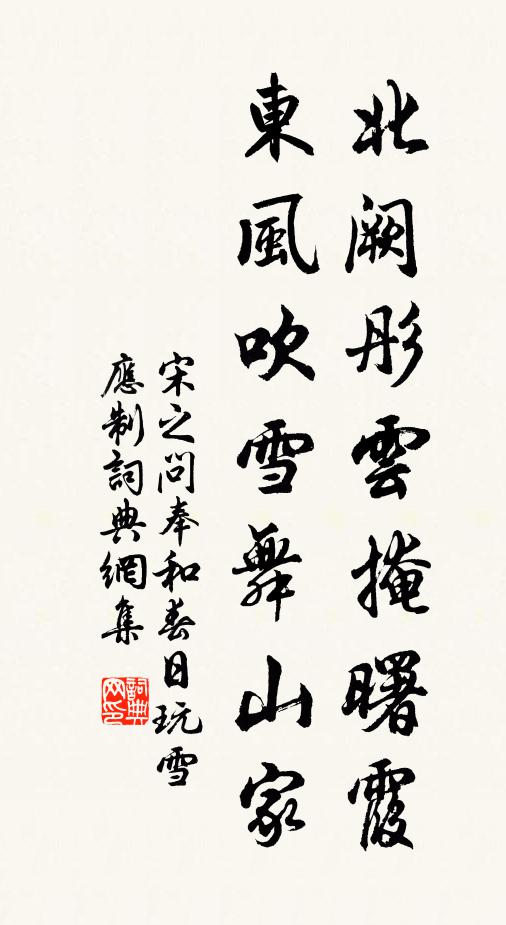 北闕彤雲掩曙霞
東風吹雪舞山家
宋之問奉和春日玩雪
應制詞典網集
詞典
网印